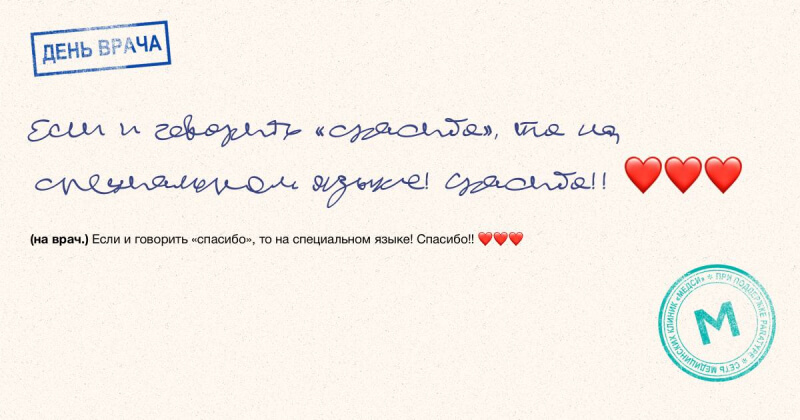 ДЕНЬ ВРАЧА
Если и говорить «спасибо», то на
специальном языке! Спасибо!! ❤️❤️❤️
(на врач.) Если и говорить «спасибо», то на специальном языке! Спасибо!! ❤️❤️❤️
СЕТЬ МЕДИЦИНСКИХ КЛИНИК «МЕДСИ» + ПРИ ПОДДЕРЖКЕ PARATYPE +
М